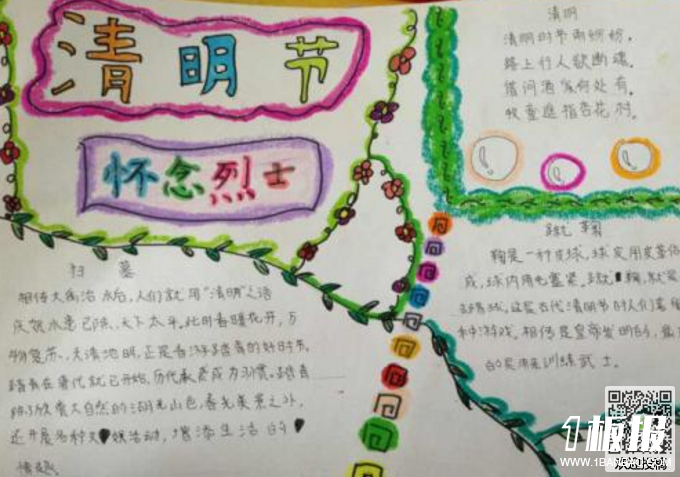 清明节
怀念烈士
清明
清明时节雨纷纷,
路上行人欲断魂.
借问酒家何处有.
牧童遥指杏花村.
扫墓
相传大禹治水后,人们就用"清明"之语
庆贺水患已除,天下太平.此时春暖花开,万
物复苏,天清地明,正是春游踏青的好时节.
踏青在唐代就已开始,历代承袭成为习惯.踏青
除了欣赏大自然的湖光山色,春光美景之外,
还开展各种文娱活动,增添生活的
情趣.
蹴鞠
鞠是一种皮球,球皮用皮革
成,球内用毛塞紧.蹴鞠,就是
踢球,这是古代清明节时人们
种游戏.相传是黄帝发明的,
的是用来训练武士.
1板报
WWW.1BANBAO.COM
欢迎投稿